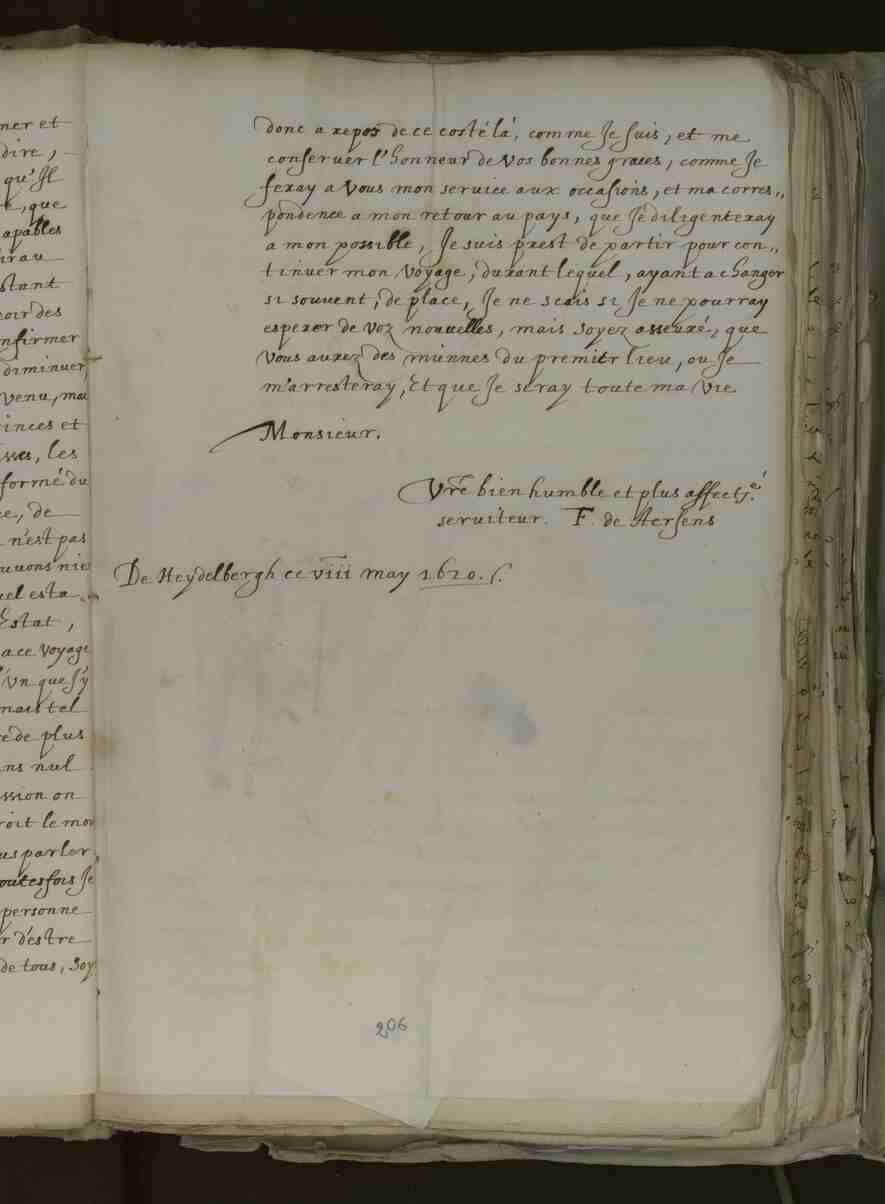 ner et
dire,
qu'Il
é, que
apables
irau
stant
oir des
nfirmer
diminuer,
venu, mai
inces et
sses, les
formé du
ce, de
n'est pas
uvons nie
uel esta
Estat,
a ce voyage
Vn que s'y
mais tel
é de plus
ns nul
ssion on
roit le mou
us parler
outesfois Je
personne
r d'estre
de tous, Soy
donc a repos de ce costé là, comme Je suis, et me
conseruer l'honneur de Vos bonnes graces, comme Je
feray a Vous mon seruice aux occasions, et ma corres„
pondence a mon retour au pays, que Je diligenteray
a mon possible, Je suis prest de partir pour con„
tinuer mon Voyage, durant lequel, ayant a changer
si souvent, de place, Je ne scais si Je ne pourray
esperer de Voz nouuelles, mais soyez asseuré, que
Vous aurez des miennes du premier lieu, ou Je
m'arresteray, Et que Je seray toute ma Vie
Monsieur.
Vre bien humble et plus affect.é
seruiteur. F. de Aersens
De Heydelbergh ce viii may 1620.
206